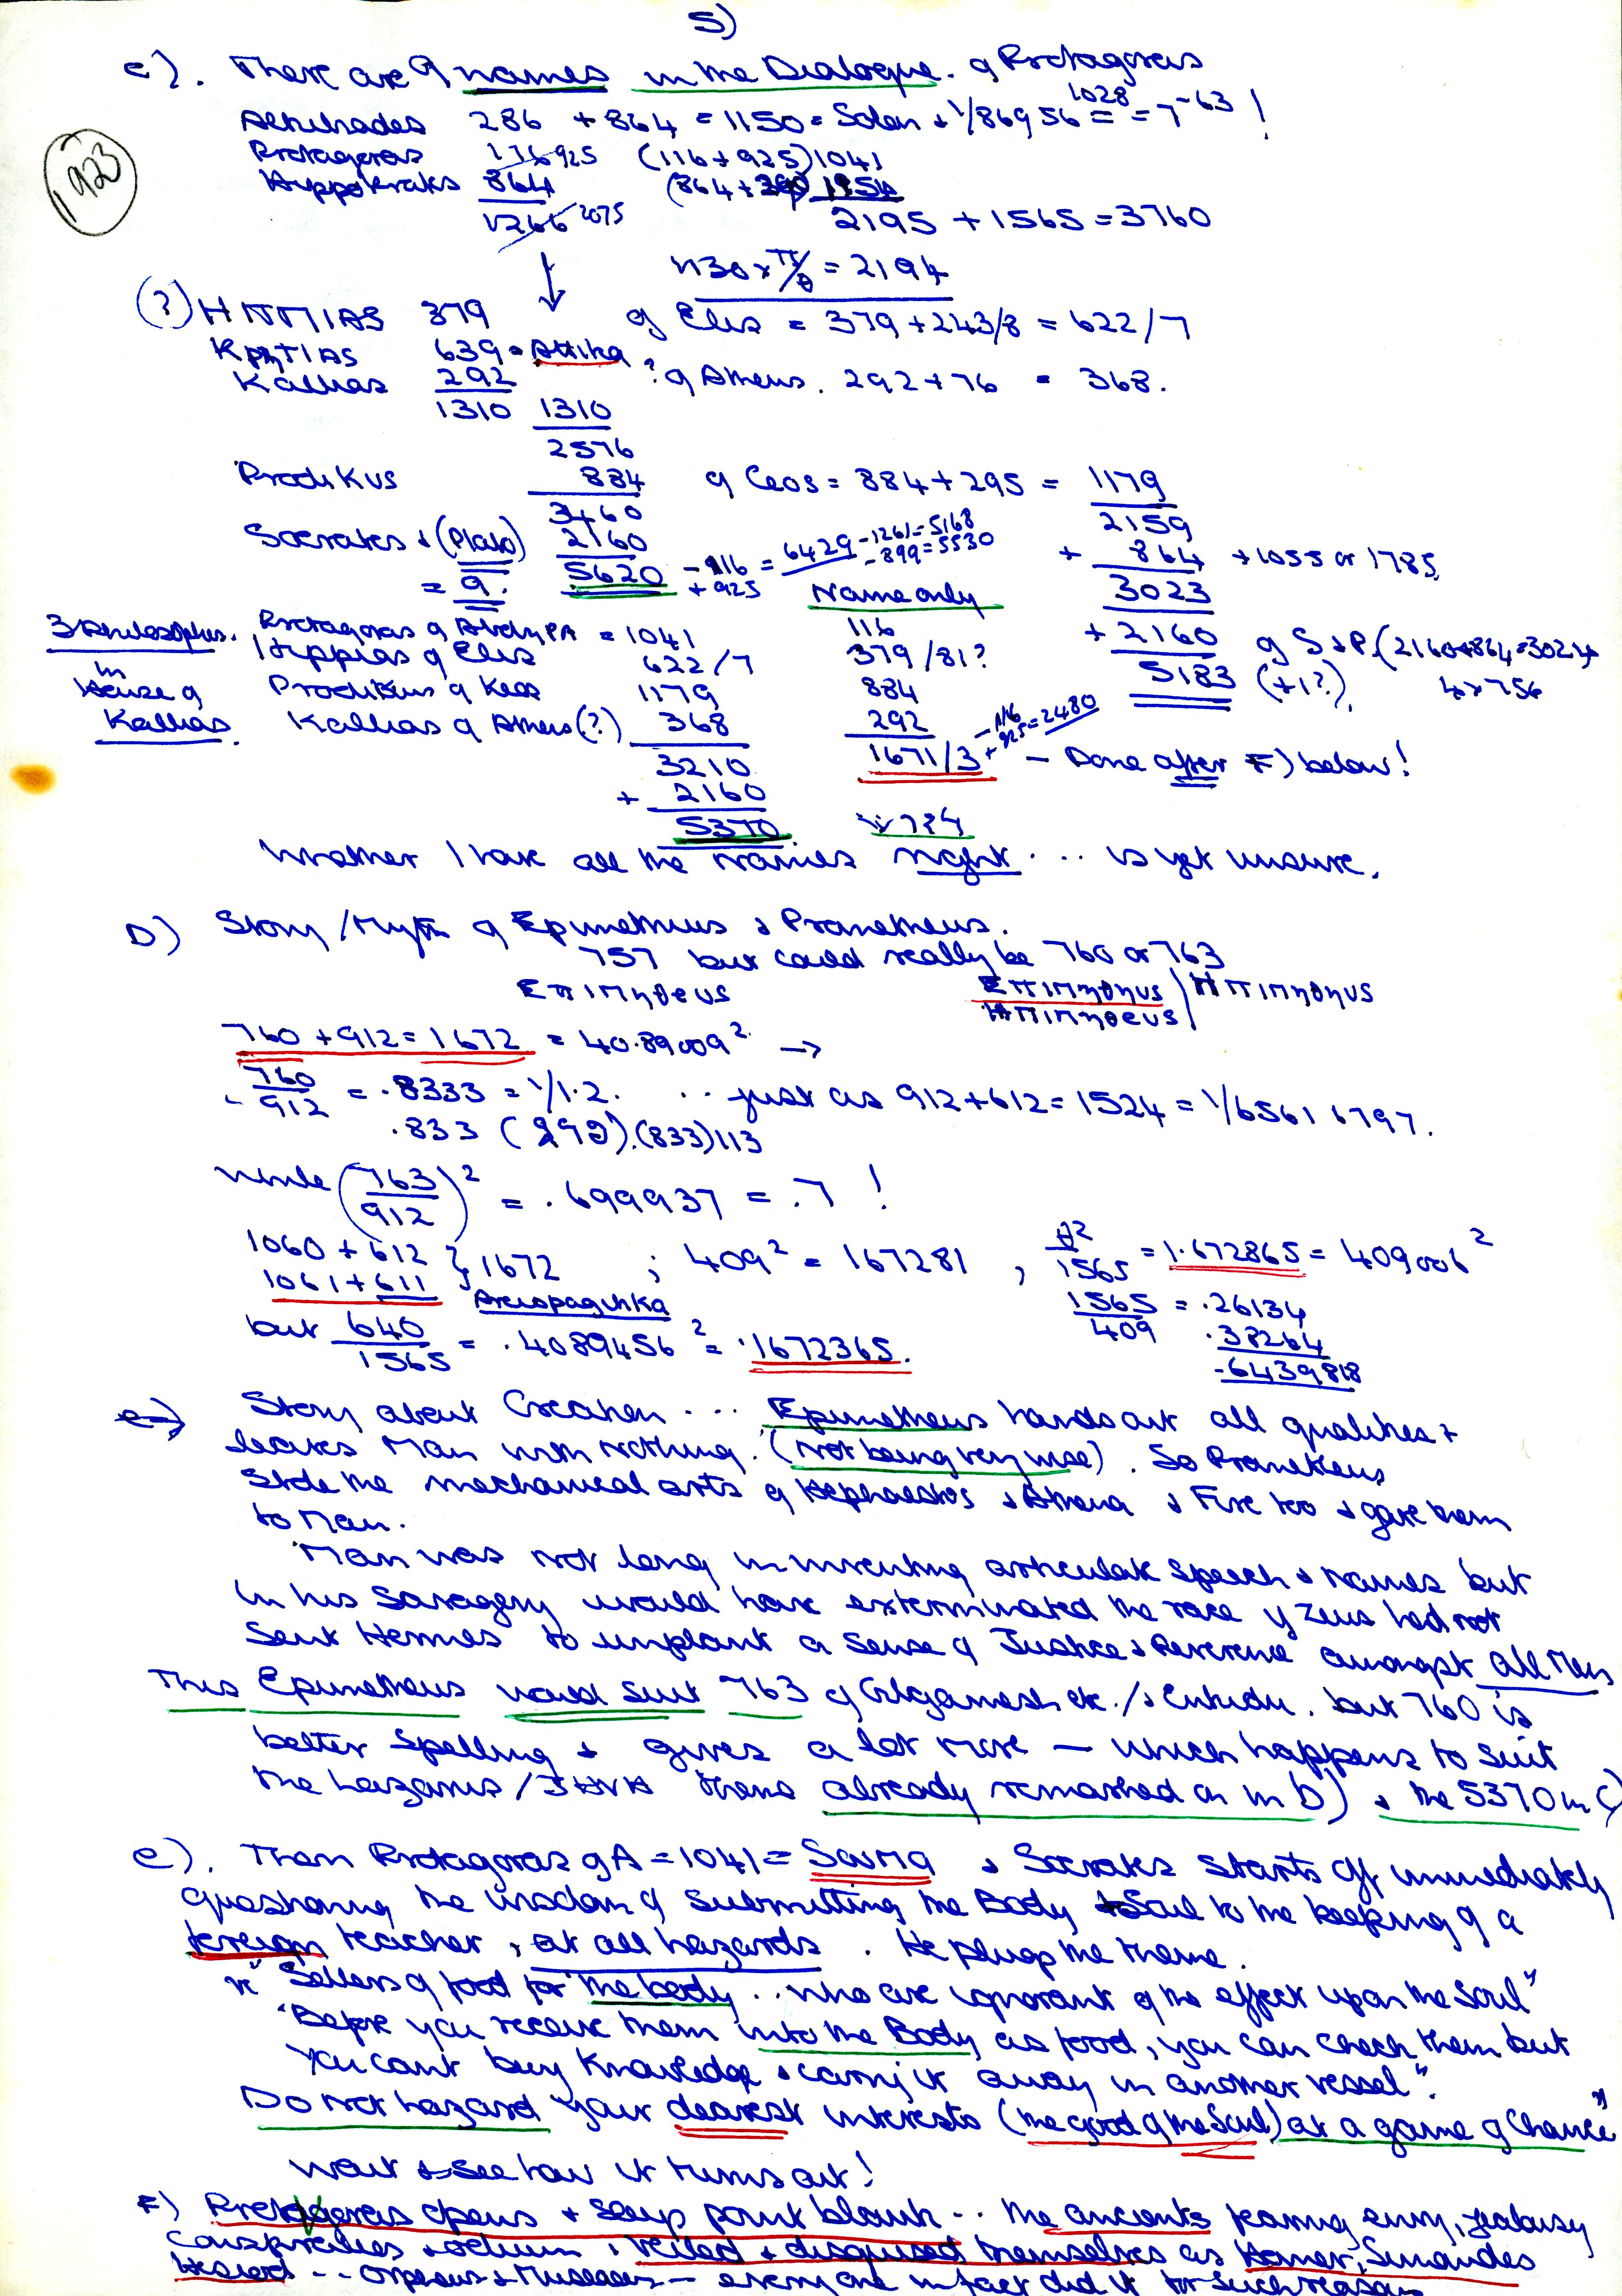 5)
c). There are 9 names in the Dialogue of Protagoras
Alkibiades 286 + 864 = 1150 = Solon + 1/86956 = 1028 = 7-63 !
1923
Protagoras 116 925 (116+925) 1041
Hyppokrates 864 (864+290) 1154
1266 2075 2195 + 1565 = 3760
1130 x π/θ = 2194
(?) HΠΠIAS 379 of Elis = 379 + 243/8 = 622/7
KρηTIAS 639 = Attika
Kallias 292 ? of Athens. 292 + 76 = 368.
1310 1310
2576
Prodikus 884 of Ceos = 884 + 295 = 1179
3460 2159
Socrates + (Plato) 2160 + 864 + 1055 or 1785
= 9. 5620 - 116 + 925 = 6429 - 1261 = 5168 - 899 = 5530 3023
Name only
3 Philosophers. Protagoras of Abdy = 1041 116 + 2160 of S + P. (2160+864=3024
in Hippias of Elis 622/7 379/81? 5183 (+1?). 4 x 756
House of Prodikus of Keos 1179 884
Kallias. Kallias of Athens (?) 368 292 - 116 + 925 = 2480
3210 1671/3 - Done after F) below!
+ 2160
5370
Whether I have all the names right ... is yet unsure.
D) Story/Myth of Epimetheus + Prometheus.
757 but could really be 760 or 763
Eπιmηθeus Eπιmηθηus / Hπιmηθηus
Hπιmηθeus
760 + 912 = 1672 = 40.89009² →
760/912 = .8333 = 1/1.2. .. just as 912 + 612 = 1524 = 1/6561 6797.
.833 (292).(833) 113
while (763/912)² = .699937 = .7 !
1060 + 612 } 1672 ; 409² = 167281 , θ²/1565 = 1.672865 = 409006²
1061 + 611 } Areiopagitika 1565/409 = .26134
.38264
.6439818
but 640/1565 = .4089456² = .1672365.
Story about Creation ... Epimetheus hands out all qualities +
leaves Man with nothing. (not being very wise). So Prometheus
Stole the mechanical arts of Hephaestos + Athena + Fire too + gave them
to Man.
Man was not long in inventing articulate speech + names but
in his Savagery would have exterminated the race if Zeus had not
Sent Hermes to implant a sense of Justice + Reverence amongst all Men
This Epimetheus would suit 763 of Gilgamesh etc. / + Enkidu. but 760 is
better spelling + gives a lot more — which happens to suit
the theme already remarked on in b) + the 5370 in C)
e). Then Protagoras of A = 1041 = Swma + Socrates starts off immediately
questioning the wisdom of submitting the Body + Soul to the keeping of a
foreign teacher, at all hazards. He plugs the theme.
"Sellers of food for the body .. who are ignorant of the effect upon the Soul"
"Before you receive them into the Body as food, you can check them but
you cant buy Knowledge + carry it away in another vessel".
Do not hazard your dearest interests (the good of the Soul) at a game of Chance"
wait + see how it turns out!
F) Protagoras opens + says point blank .. the ancients fearing envy, jealousy
conspiracies + odium, veiled + disguised themselves as Homer, Simonides
Hesiod .. Orpheus + Musaeus — everyone in fact did it for such reasons